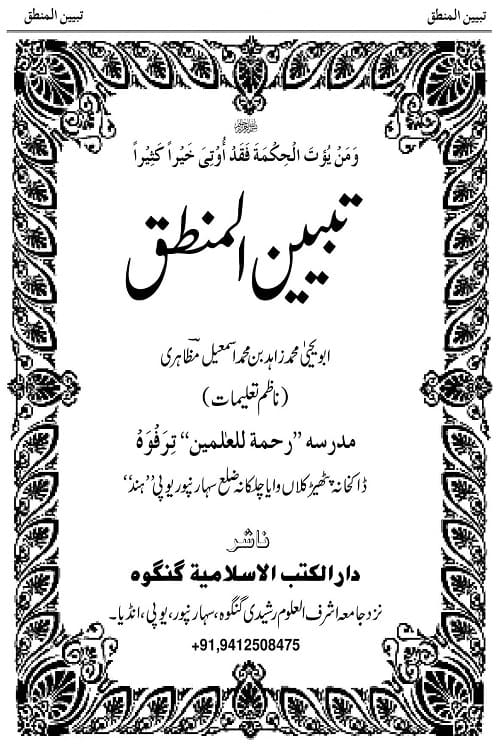 تبیین المنطق
تبیین المنطق
﷽
وَمَنْ یُؤْتَ الْحِکْمَةَ فَقَدْ أُوْتِیَ خَیْراً کَثِیْراً
تبیین المنطق
ابو یحییٰ محمد زاہد بن محمد اسمٰعیل مظاہری
(ناظم تعلیمات)
مدرسه ”رحمة للعٰلمین“ تِرَفْوَهْ
ڈاکخانہ پٹھیڑ کلاں وایا چلکانہ ضلع سہارنپور یوپی ”ہند“
ناشر
دار الکتب الاسلامیة گنگوه
نزد جامعہ اشرف العلوم رشیدی گنگوہ، سہارنپور، یوپی، انڈیا۔
+91,9412508475